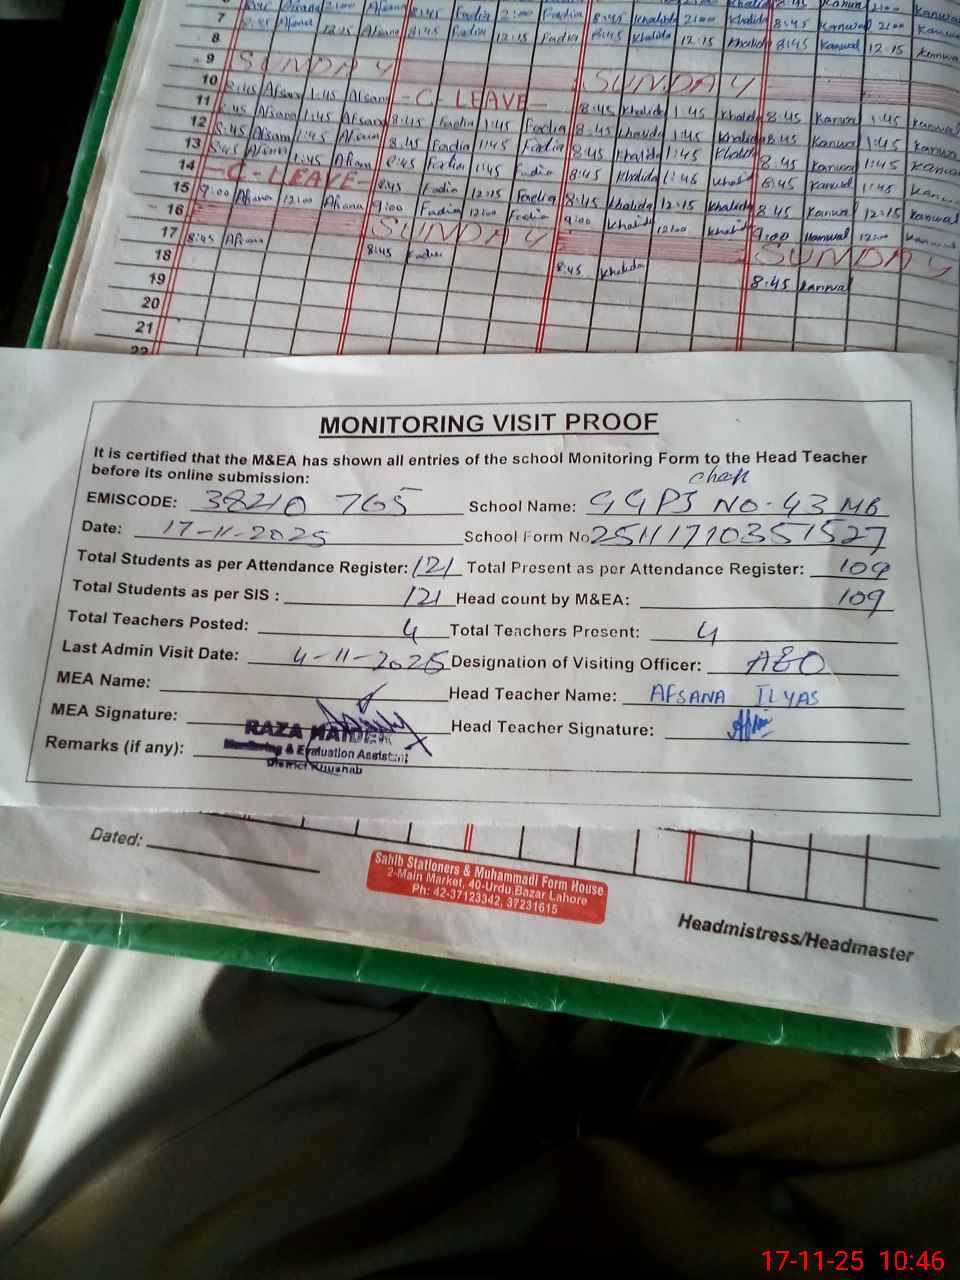 7 8:45 Afsana 2:00 Afsana 8:45 Fadia 2:00 Fadia 8:45 Khalida 2:00 Khalida 8:45 Kanwal 2:00 Kanwal
8 8:45 Afsana 12:15 Afsana 8:45 Fadia 12:15 Fadia 8:45 Khalida 12:15 Khalida 8:45 Kanwal 12:15 Kanwal
9 SUNDAY SUNDAY
10 8:45 Afsana 1:45 Afsana -C- LEAVE- 8:45 Khalida 1:45 Khalida 8:45 Kanwal 1:45 Kanwal
11 8:45 Afsana 1:45 Afsana 8:45 Fadia 1:45 Fadia 8:45 Khalida 1:45 Khalida 8:45 Kanwal 1:45 Kanwal
12 8:45 Afsana 1:45 Afsana 8:45 Fadia 1:45 Fadia 8:45 Khalida 1:45 Khalida 8:45 Kanwal 1:45 Kanwal
13 8:45 Afsana 1:45 Afsana 8:45 Fadia 1:45 Fadia 8:45 Khalida 1:45 Khalida 8:45 Kanwal 1:45 Kanwal
14 -C-LEAVE- 8:45 Fadia 12:15 Fadia 8:45 Khalida 12:15 Khalida 8:45 Kanwal 12:15 Kanwal
15 9:00 Afsana 12:00 Afsana 9:00 Fadia 12:00 Fadia 9:00 Khalida 12:00 Khalida 9:00 Kanwal 12:00 Kanwal
16 SUNDAY SUNDAY
17 8:45 Afsana 8:45 Fadia 8:45 Khalida 8:45 Kanwal
18
19
20
21
22
MONITORING VISIT PROOF
It is certified that the M&EA has shown all entries of the school Monitoring Form to the Head Teacher
before its online submission:
chak
EMISCODE: 38210 765 School Name: GGPS NO-43 MB
Date: 17-11-2025 School Form No 25111710351527
Total Students as per Attendance Register: 121 Total Present as per Attendance Register: 109
Total Students as per SIS : 121 Head count by M&EA: 109
Total Teachers Posted: 4 Total Teachers Present: 4
Last Admin Visit Date: 4-11-2025 Designation of Visiting Officer: AEO
MEA Name: Head Teacher Name: AFSANA ILYAS
MEA Signature: Head Teacher Signature:
RAZA HAIDER
Monitoring & Evaluation Assistant
District Khushab
Remarks (if any):
Dated:
Sahib Stationers & Muhammadi Form House
2-Main Market, 40-Urdu Bazar Lahore
Ph: 42-37123342, 37231615
Headmistress/Headmaster
17-11-25 10:46